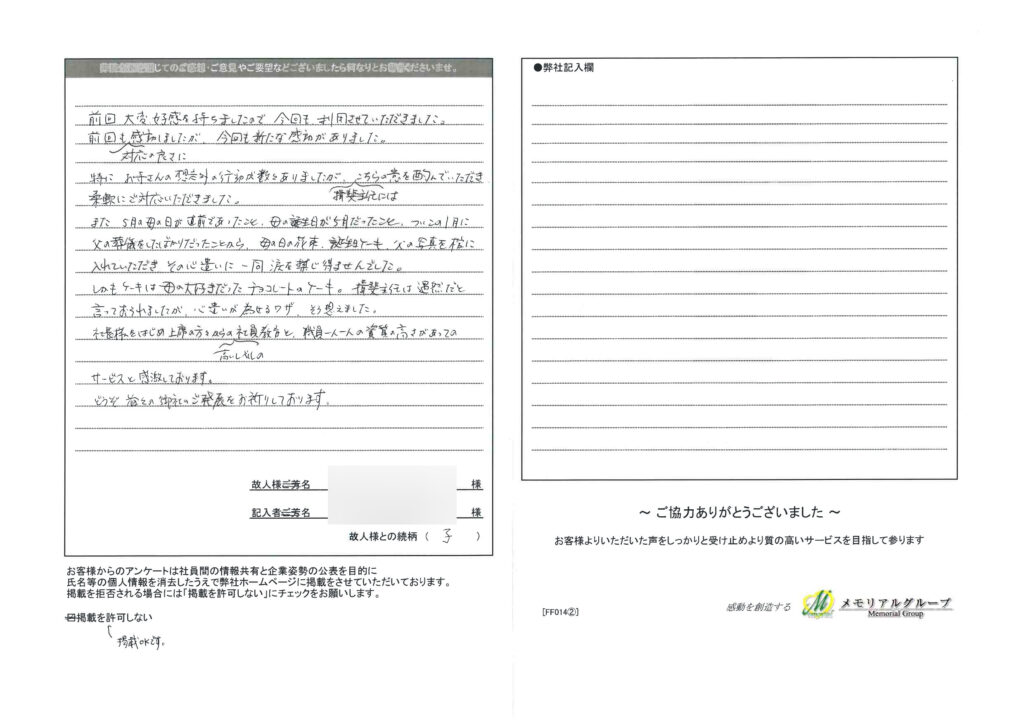 弊社全般を通じてのご感想・ご意見やご要望などございましたら何なりとお書きくださいませ。
前回 大変好感を持ちましたので 今回も利用させていただきました。
前回も感動しましたが、今回も新たな感動がありました。
対応の良さに
特に お寺さんの想定外の行動が数々ありましたが、こちらの意を酌んでいただき
揖斐主任には
柔軟にご対応いただきました。
また 5月の母の日が直前であったこと、母の誕生日が5月だったこと、ついこの1月に
父の葬儀をしたばかりだったことから、母の日の花束、誕生日ケーキ、父の写真を棺に
入れていただき その心遣いに 一同 涙を禁じ得ませんでした。
しかもケーキは 母の大好きだった チョコレートのケーキ。揖斐主任は 偶然だと
言っておられましたが、心遣いが為せるワザ、そう思えました。
社長様をはじめ上席の方々からの社員教育と、職員一人一人の資質の高さがあっての
高いレベルの
サービスと感激しております。
どうぞ 益々の御社のご発展をお祈りしております。
故人様ご芳名 様
記入者ご芳名 様
故人様との続柄 ( 子 )
お客様からのアンケートは社員間の情報共有と企業姿勢の公表を目的に
氏名等の個人情報を消去したうえで弊社ホームページに掲載をさせていただいております。
掲載を拒否される場合には「掲載を許可しない」にチェックをお願いします。
☑掲載を許可しない
掲載OKです。
●弊社記入欄
～ ご協力ありがとうございました ～
お客様よりいただいた声をしっかりと受け止めより質の高いサービスを目指して参ります
[FF014②]
感動を創造する メモリアルグループ
Memorial Group